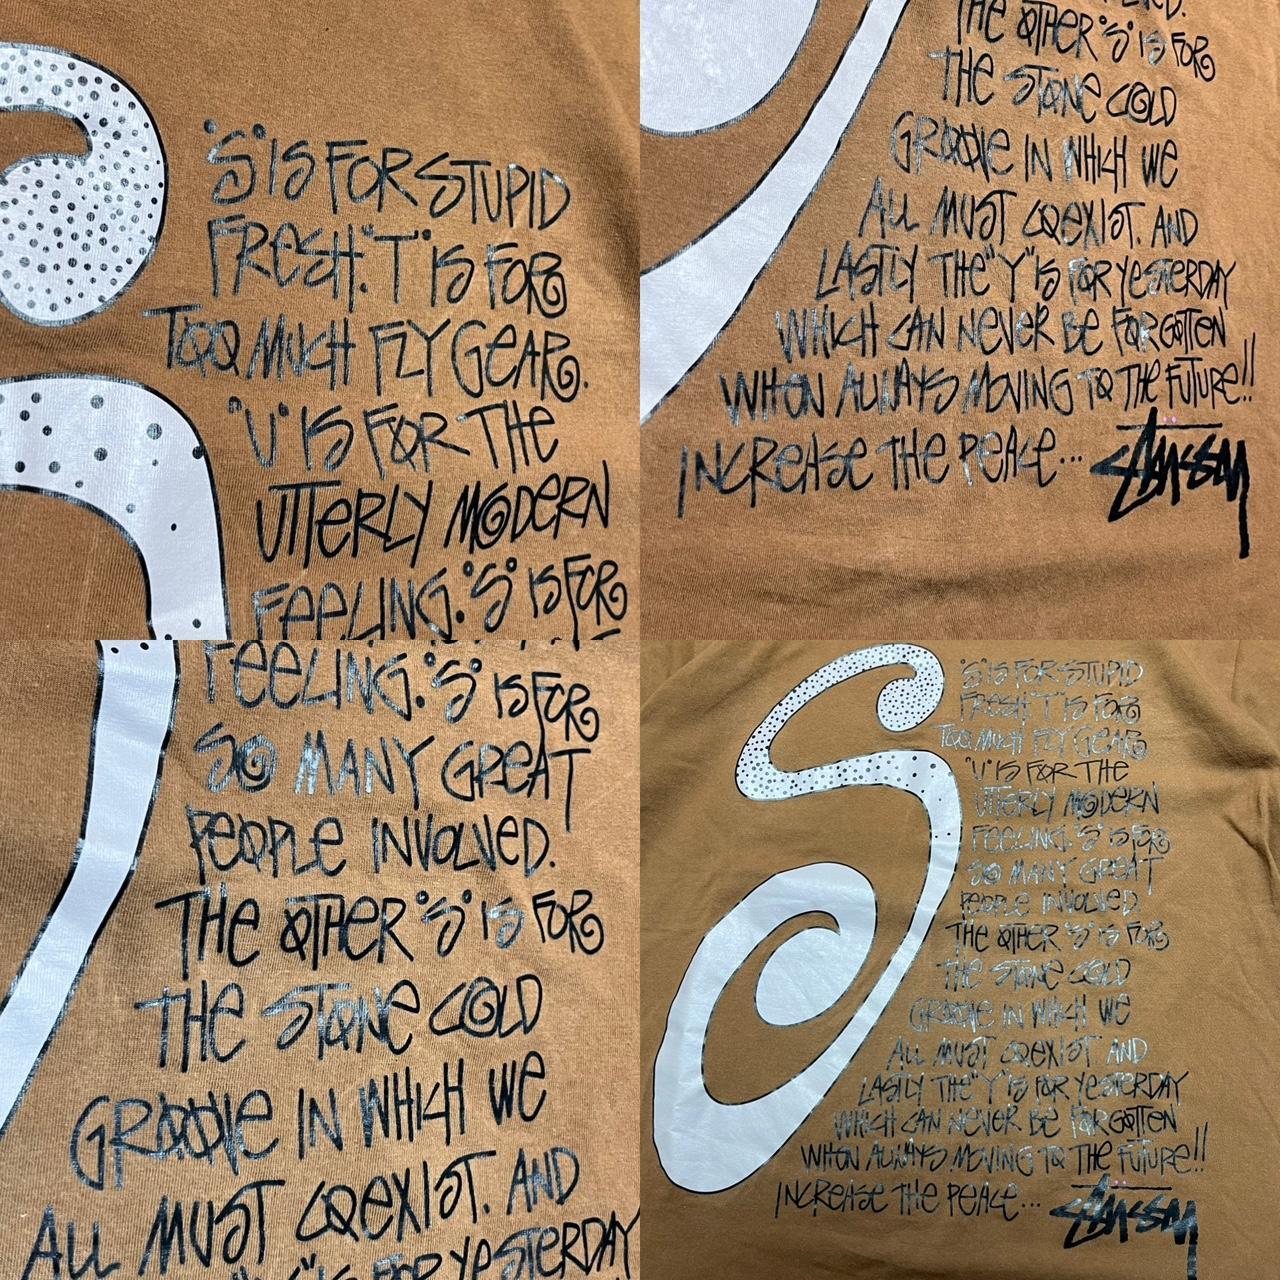 "S" IS FOR STUPID
FRESH. "T" IS FOR
TOO MUCH FLY GEAR.
"U" IS FOR THE
UTTERLY MODERN
FEELING. "S" IS FOR
THE OTHER "S" IS FOR
THE STONE COLD
GROOVE IN WHICH WE
ALL MUST COEXIST. AND
LASTLY THE "Y" IS FOR YESTERDAY
WHICH CAN NEVER BE FORGOTTEN
WHEN ALWAYS MOVING TO THE FUTURE!!
INCREASE THE PEACE... STÜSSY
FEELING. "S" IS FOR
SO MANY GREAT
PEOPLE INVOLVED.
THE OTHER "S" IS FOR
THE STONE COLD
GROOVE IN WHICH WE
ALL MUST COEXIST. AND
"Y" IS FOR YESTERDAY
"S" IS FOR STUPID
FRESH. "T" IS FOR
TOO MUCH FLY GEAR.
"U" IS FOR THE
UTTERLY MODERN
FEELING. "S" IS FOR
SO MANY GREAT
PEOPLE INVOLVED.
THE OTHER "S" IS FOR
THE STONE COLD
GROOVE IN WHICH WE
ALL MUST COEXIST. AND
LASTLY THE "Y" IS FOR YESTERDAY
WHICH CAN NEVER BE FORGOTTEN
WHEN ALWAYS MOVING TO THE FUTURE!!
INCREASE THE PEACE... STÜSSY